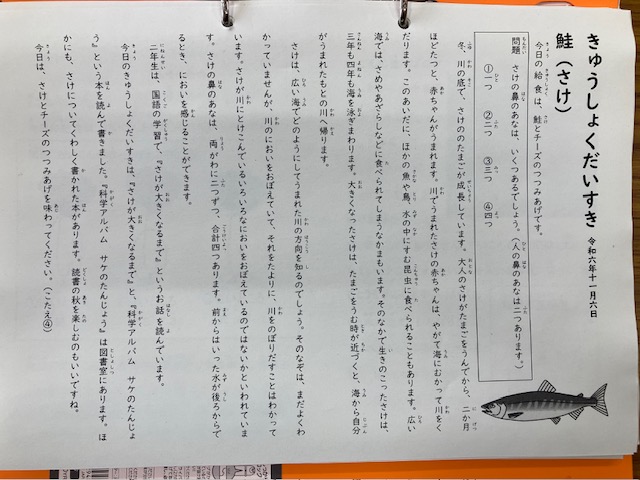 きゅうしょくだいすき 令和六年十一月六日
鮭(さけ)
今日の給食は、鮭とチーズのつつみあげです。
問題 さけの鼻のあなは、いくつあるでしょう。(人の鼻のあなは二つあります。)
①一つ ②二つ ③三つ ④四つ
冬、川の底で、さけののたまごが成長しています。大人のさけがたまごをうんでから、二か月
ほどたつと、赤ちゃんがうまれます。川でうまれたさけの赤ちゃんは、やがて海にむかって川をく
だります。このあいだに、ほかの魚や鳥、水の中にすむ昆虫に食べられることもあります。広い
海では、さめやあざらしなどに食べられてしまうなかまもいます。そのなかで生きのこったさけは、
三年も四年も海を泳ぎまわります。大きくなったさけは、たまごをうむ時が近づくと、海から自分
がうまれたもとの川へ帰ります。
さけは、広い海でどのようにしてうまれた川の方向を知るのでしょう。そのなぞは、まだよくわ
かっていませんが、川のにおいをおぼえていて、それをたよりに、川をのぼりだすことはわかって
います。さけが川にとけこんでいるいろいろなにおいをおぼえているのではないかといわれていま
す。さけの鼻のあなは、両がわに二つずつ、合計四つあります。前からはいった水が後ろからで
るとき、においを感じることができます。
二年生は、国語の学習で、『さけが大きくなるまで』というお話を読んでいます。
今日のきゅうしょくだいすきは、『さけが大きくなるまで』と、『科学アルバム サケのたんじょ
う』という本を読んで書きました。『科学アルバム サケのたんじょう』は図書室にあります。ほ
かにも、さけについてくわしく書かれた本があります。読書の秋を楽しむのもいいですね。
今日は、さけとチーズのつつみあげを味わってください。(こたえ④)